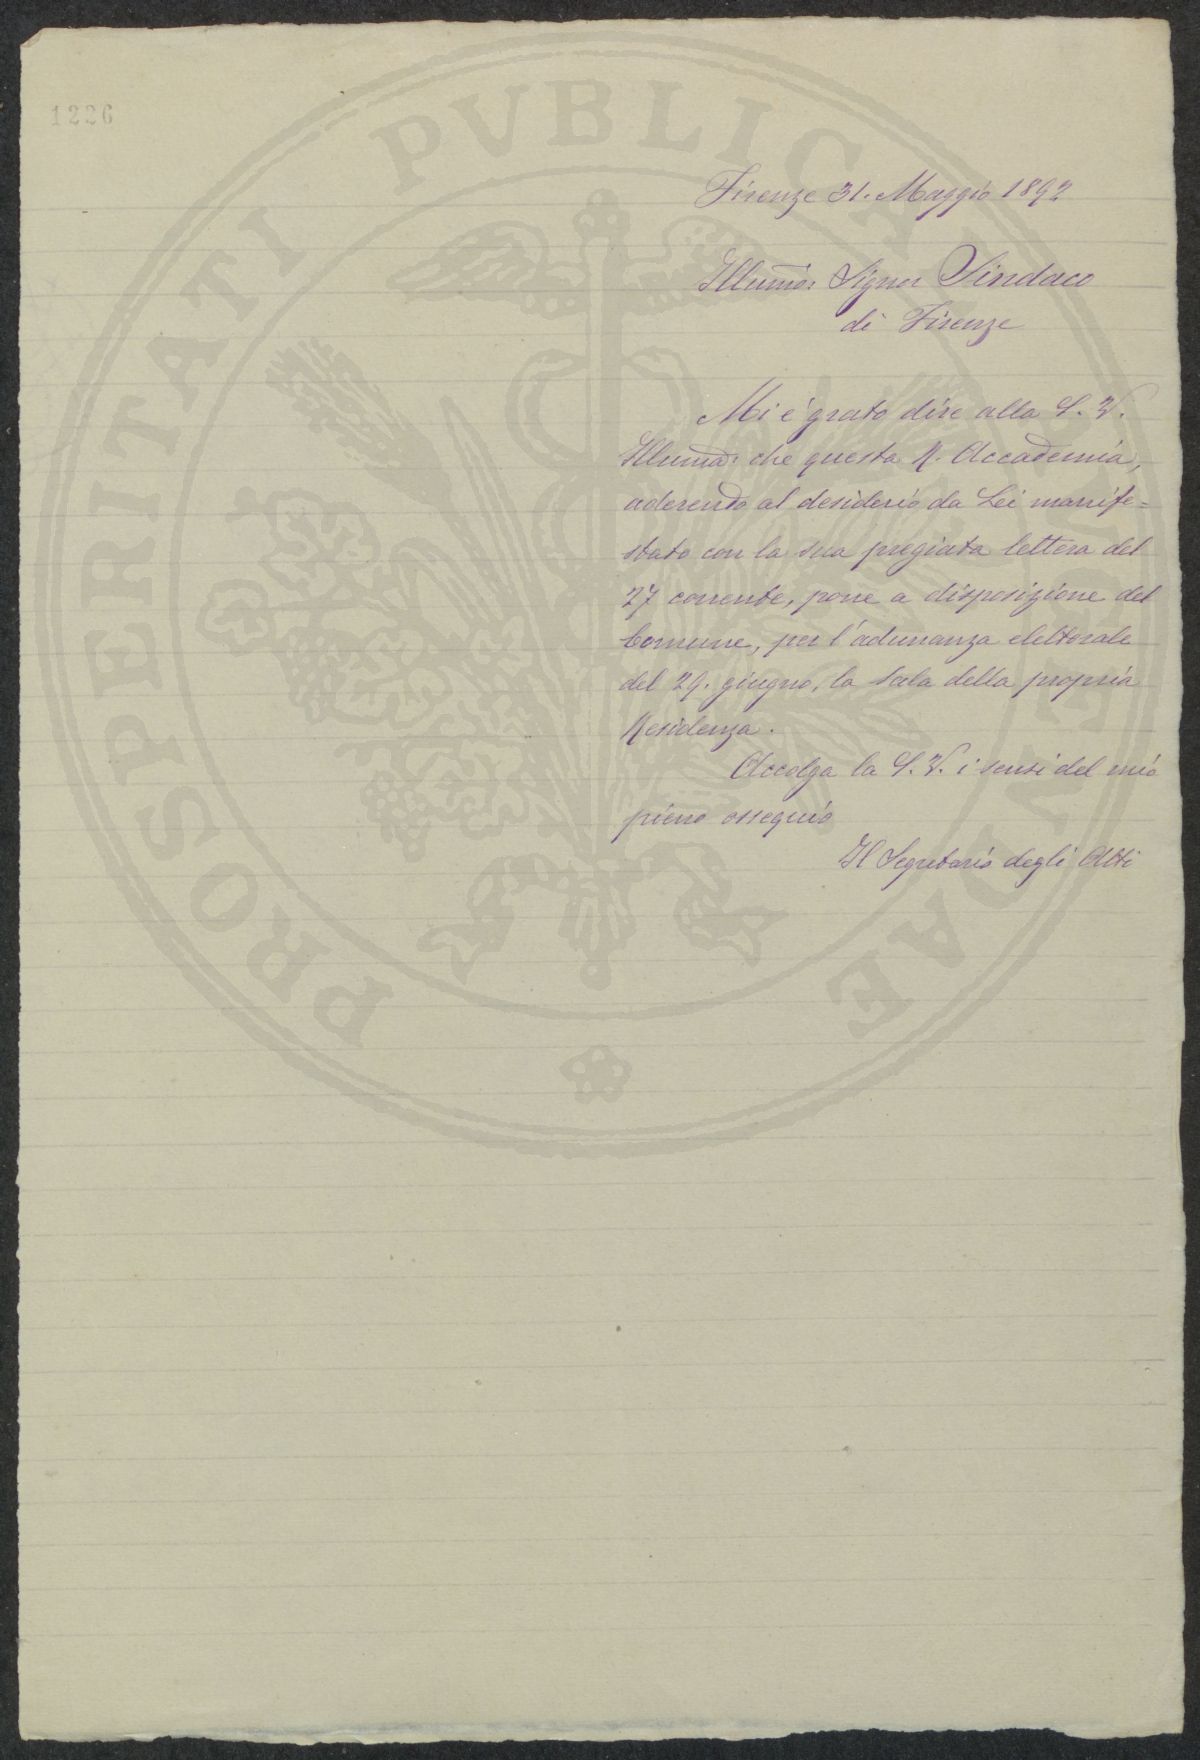 1226
PROSPERITATI PVBLICAE AVGENDAE
Firenze 31. Maggio 1892
Illumo: Signor Sindaco
di Firenze
Mi è grato dire alla S. V.
Illuma: che questa R. Accademia,
aderendo al desiderio da Lei manife=
stato con la sua pregiata lettera del
27 corrente, pone a disposizione del
Comune, per l'adunanza elettorale
del 29. giugno, la sala della propria
Residenza.
Accolga la S. V. i sensi del mio
pieno ossequio
Il Segretario degli Atti